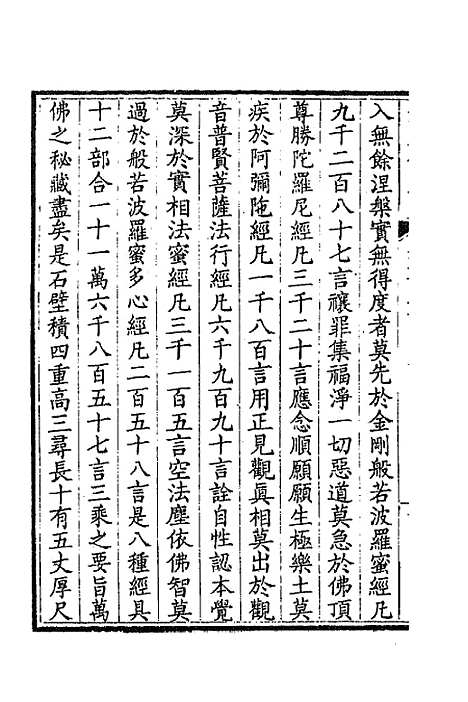 入無餘涅槃實無得度者莫先於金剛般若波羅蜜經凡
九千二百八十七言禳罪集福淨一切惡道莫急於佛頂
尊勝陀羅尼經凡三千二十言應念順願願生極樂土莫
疾於阿彌陁經凡一千八百言用正見觀眞相莫出於觀
音普賢菩薩法行經凡六千九百九十言詮自性認本覺
莫深於實相法蜜經凡三千一百五言空法塵依佛智莫
過於般若波羅蜜多心經凡二百五十八言是八種經具
十二部合一十一萬六千八百五十七言三乘之要旨萬
佛之秘藏盡矣是石壁積四重高三尋長十有五丈厚尺